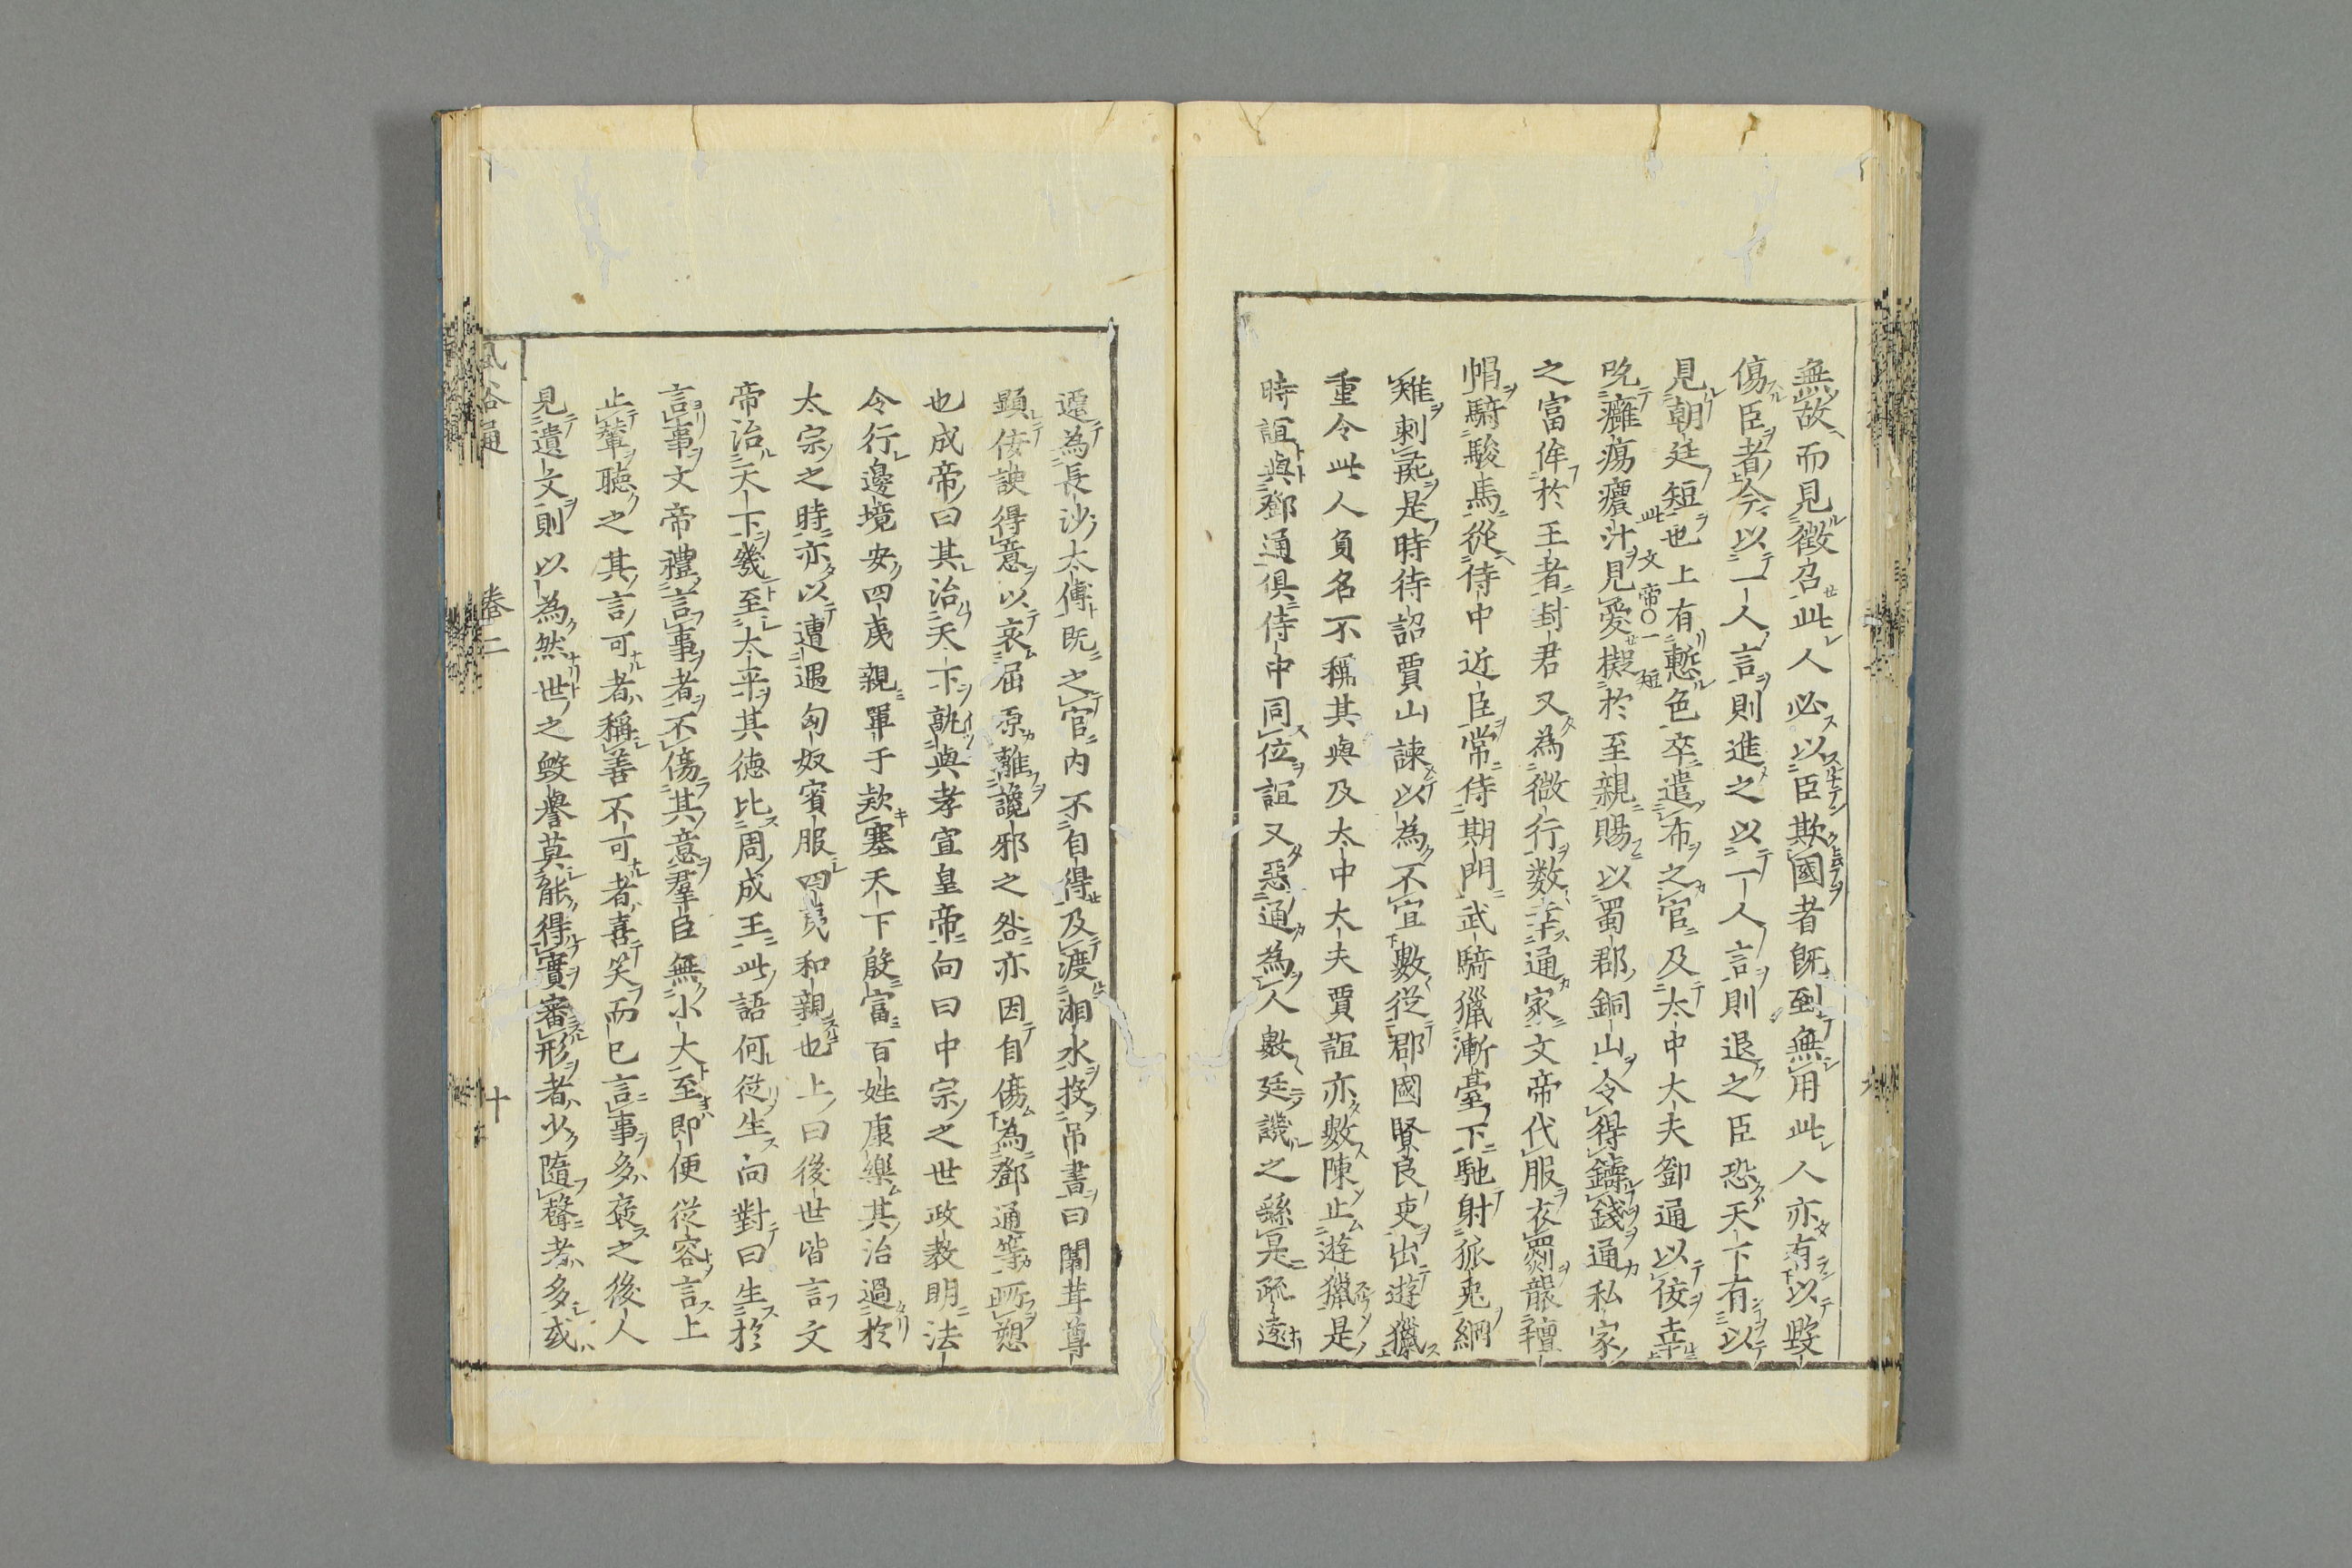 無故而見徴召此人必以臣欺國者既到無用此人亦有以毀
傷臣者今以一人言則進之以一人言則退之臣恐天下有以
見朝廷短也上有慙色卒遣布之官及太中大夫鄧通以佞幸
吮癰瘍癑汁見愛擬於至親賜以蜀郡銅山令得鑄錢通私家
之富侔於王者封君又為微行数幸通家文帝代服衣罽襲氊
帽騎駿馬從侍中近臣常侍期門武騎獵漸臺下馳射狐兎綱
雉刺彘是時待詔賈山諫以為不宜數從郡國賢良吏出遊獵
重令此人負名不稱其與及太中大夫賈誼亦數陳止遊獵是
時誼與鄧通俱侍中同位誼又惡通為人數廷譏之繇是疏遠
遷為長沙太傅既之官内不自得及渡湘水投吊書曰闒茸尊
顯佞諛得意以哀屈原離讒邪之咎亦因自傷為鄧通等所愬
也成帝曰其治天下孰與孝宣皇帝向曰中宗之世政教明法
令行邊境安四夷親單于款塞天下殷富百姓康樂其治過於
太宗之時亦以遭遇匈奴賓服四夷和親也上曰後世皆言文
帝治天下幾至太平其徳比周成王此語何從生向對曰生於
言事文帝禮言事者不傷其意羣臣無小大至即便從容言上
止輦聽之其言可者稱善不可者喜笑而已言事多褒之後人
見遺文則以為然世之毀譽莫能得實審形者少隨聲者多或
風俗通　卷二　十